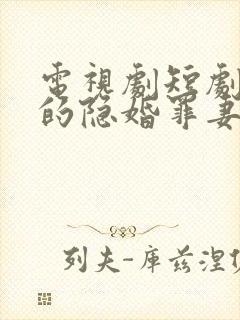 電視劇短劇
的隐婚罪妻
列夫-库兹涅